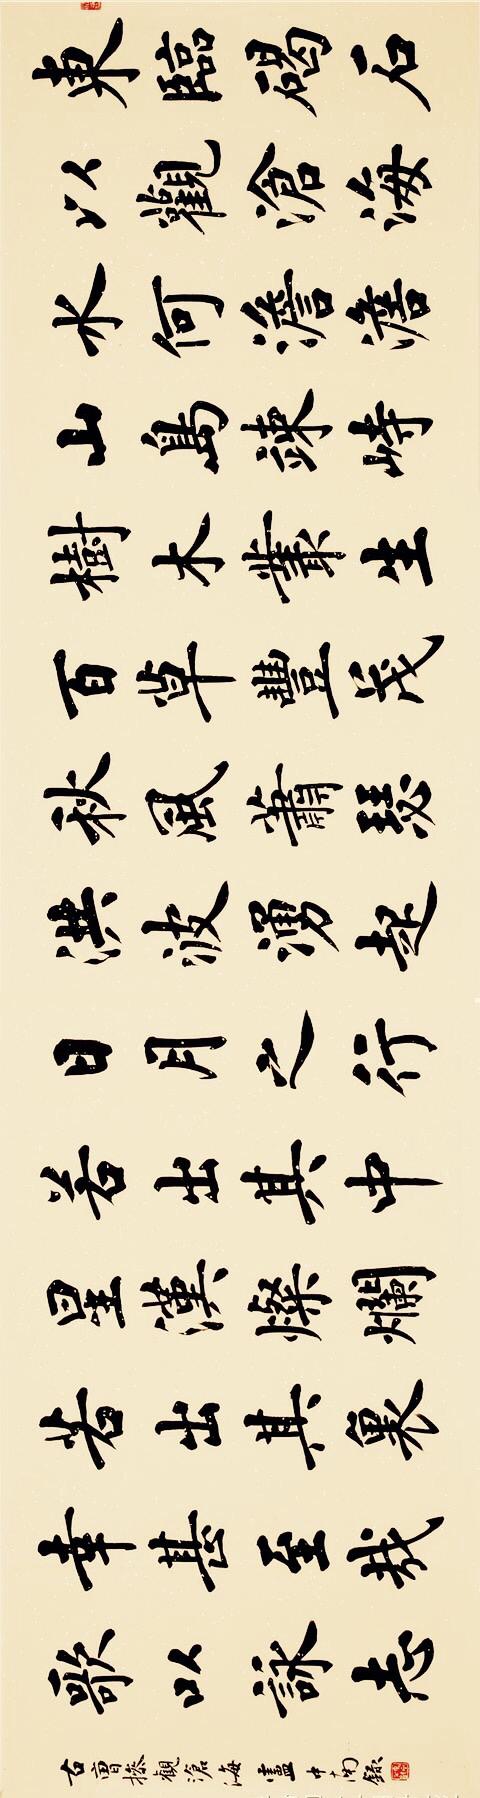 東臨碣石
以觀滄海
水何澹澹
山島竦峙
樹木叢生
百草豐茂
秋風蕭瑟
洪波湧起
日月之行
若出其中
星漢燦爛
若出其裏
幸甚至哉
歌以詠志
右曹操觀滄海 盧中南錄